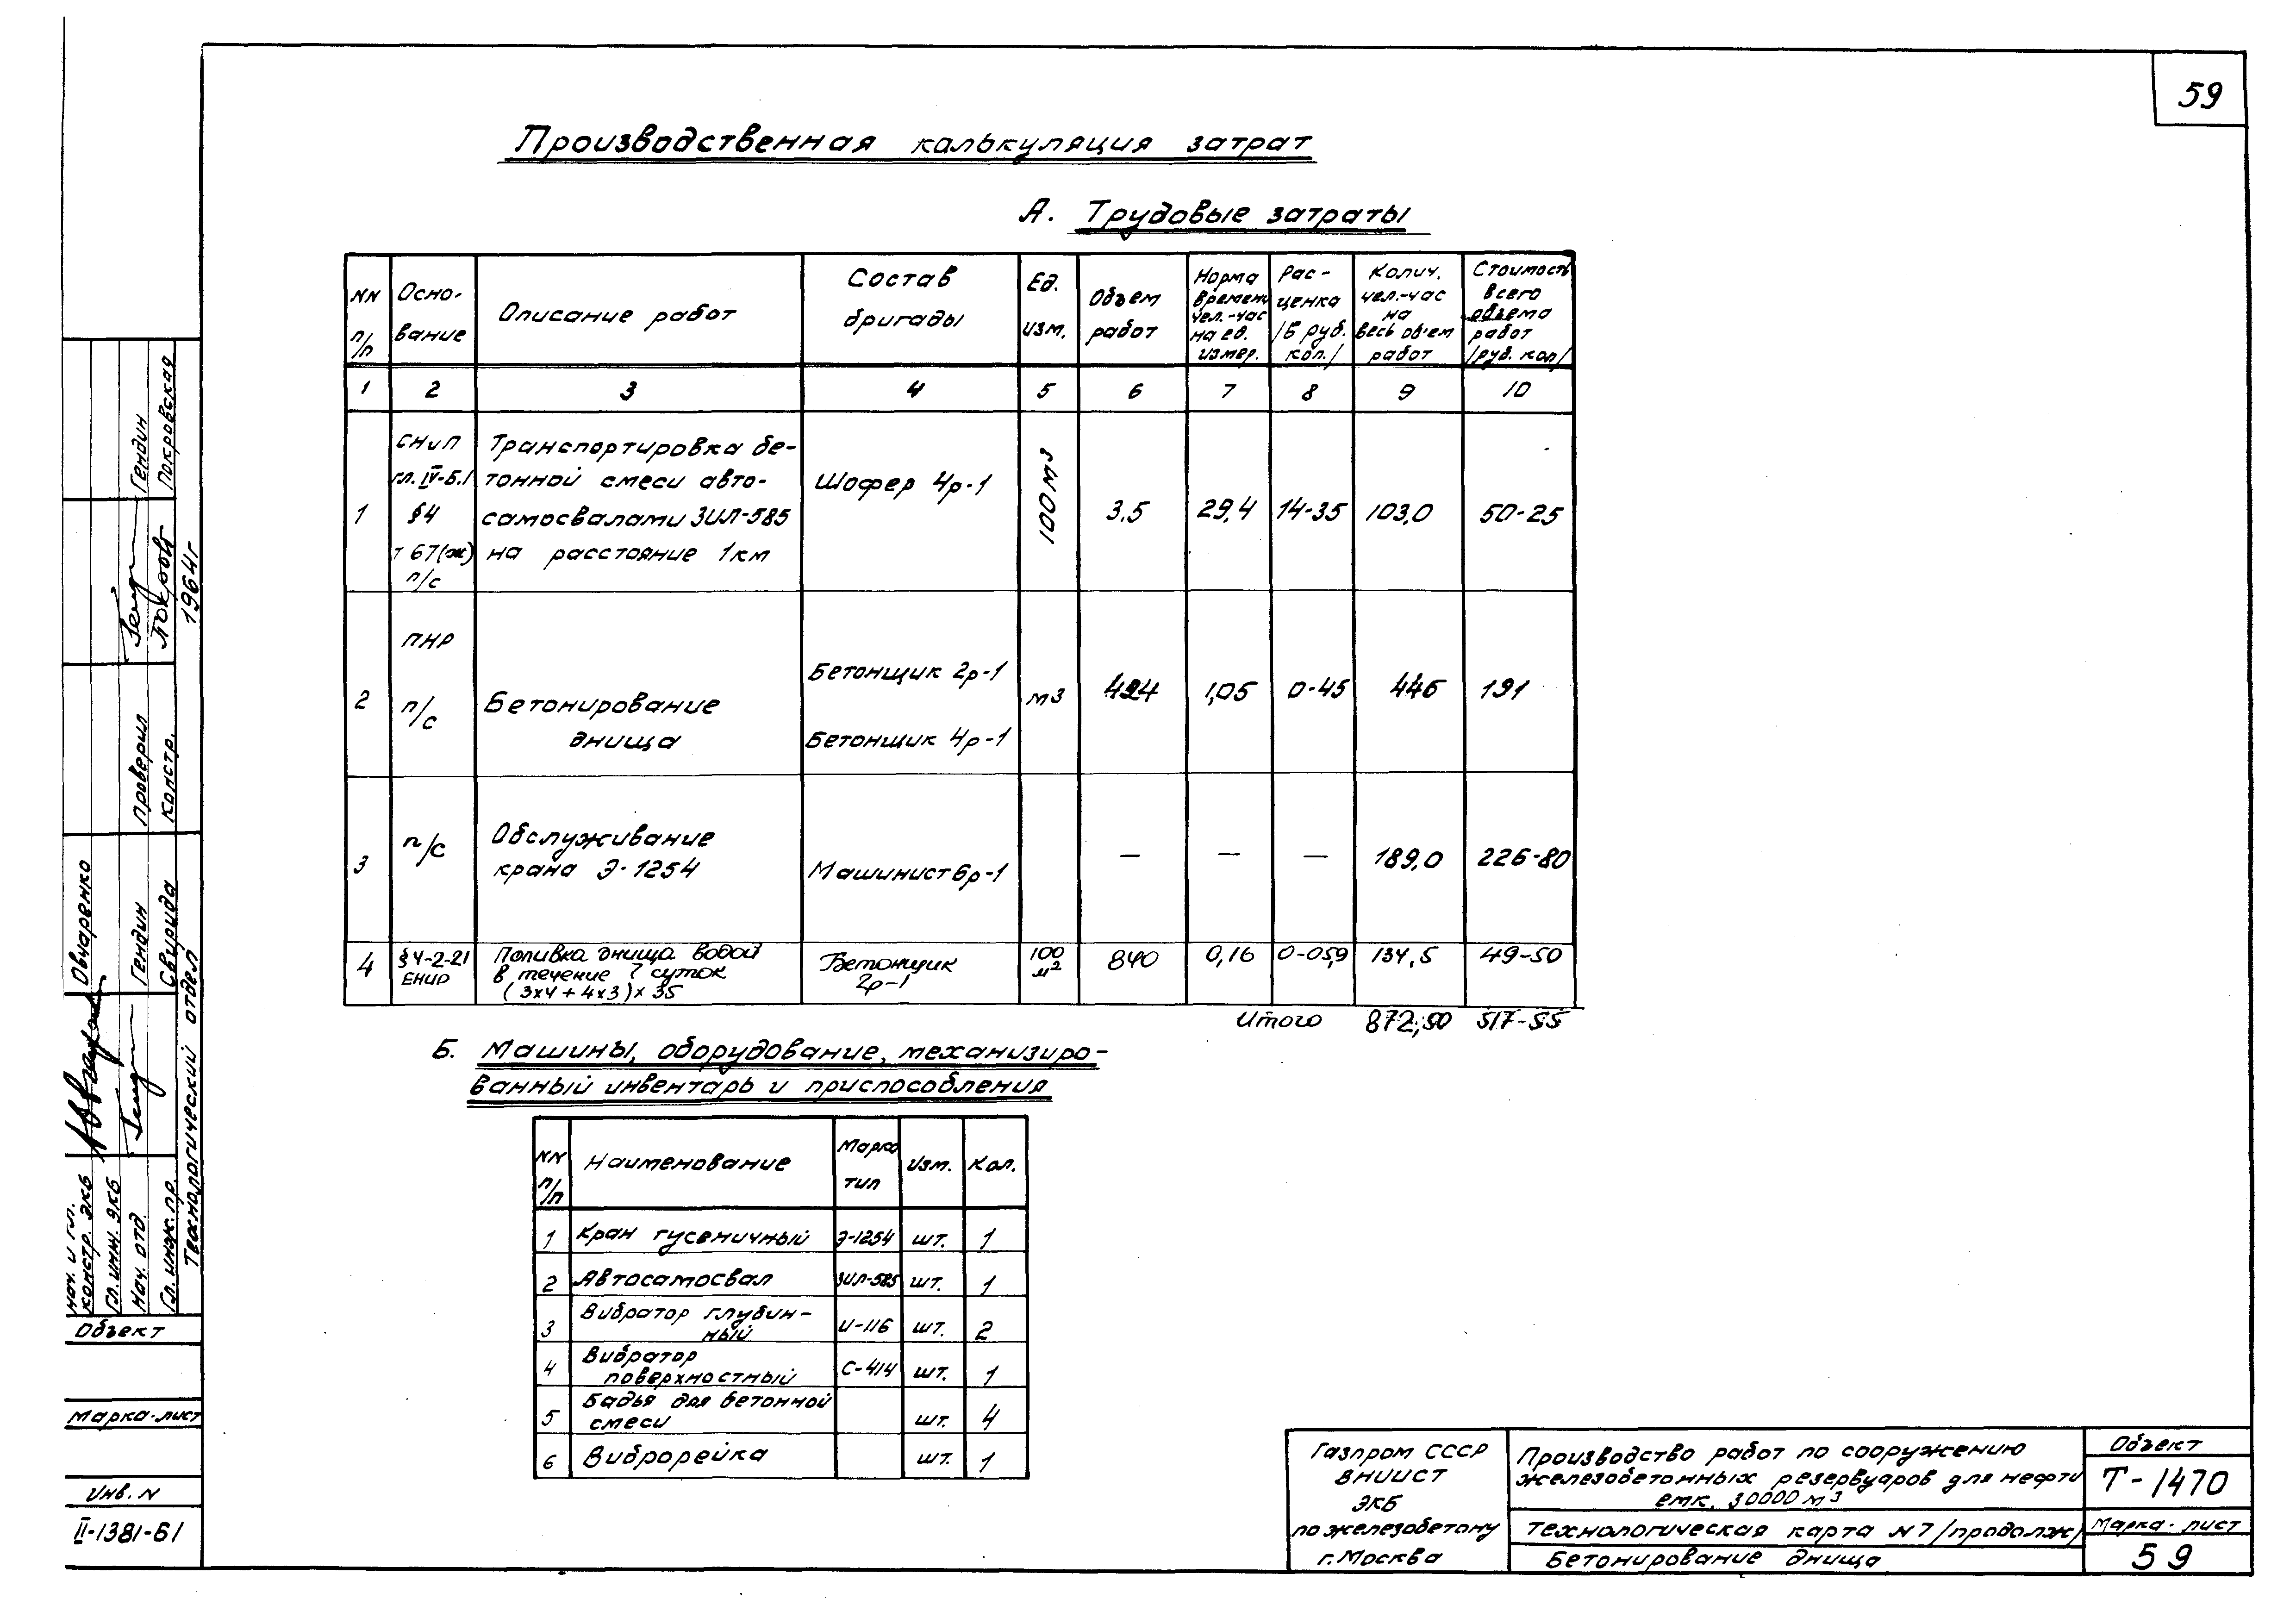 59
Производственная калькуляция затрат
А. Трудовые затраты
NN п/п
Осно-вание
Описание работ
Состав бригады
Ед. изм.
Объем работ
Норма времени чел.-час на ед. измер.
Рас-ценка /в руб. коп./
Колич. чел.-час на весь объем работ
Стоимость всего объема работ /руб. коп/
1 2 3 4 5 6 7 8 9 10
1
СНиП
гл. IV-Б.1
§4
т 67(ж)
п/с
Транспортировка бе-
тонной смеси авто-
самосвалами ЗИЛ-585
на расстояние 1км
Шофер 4р-1
100м3
3,5 29,4 14-35 103,0 50-25
2
ПНР
п/с
Бетонирование
днища
Бетонщик 2р-1
Бетонщик 4р-1
м3
424 1,05 0-45 446 191
3
п/с
Обслуживание
крана Э-1254
Машинист 6р-1
— — — 189,0 226-80
4
§4-2-21
ЕНИР
Поливка днища водой
в течение 7 суток
(3х4 + 4х3)х 35
Бетонщик
2р-1
100 м2
840 0,16 0-05,9 134,5 49-50
Итого 872,50 517-55
Б. Машины, оборудование, механизиро-
ванный инвентарь и приспособления
NN п/п
Наименование
Марка тип
Изм.
Кол.
1 Кран гусеничный Э-1254 шт. 1
2 Автосамосвал ЗИЛ-585 шт. 1
3 Вибратор глубин-
ный И-116 шт. 2
4 Вибратор
поверхностный С-414 шт. 1
5 Бадья для бетонной
смеси шт. 4
6 Виброрейка шт. 1
Газпром СССР
ВНИИСТ
ЭКБ
по железобетону
г. Москва
Производство работ по сооружению
железобетонных резервуаров для нефти
емк. 30000 м3
Технологическая карта N7 /продолж/
Бетонирование днища
Объект
Т-1470
Марка-лист
59
Нач. и гл.
констр. ЭКБ
Овчаренко
Гл. инж. ЭКБ
Нач. отд.
Гендин
проверил
Гендин
Гл. инж. пр.
Свирида
констр.
Покровская
Технологический отдел
1964г
Объект
Марка-лист
Инв. N
II-1381-61